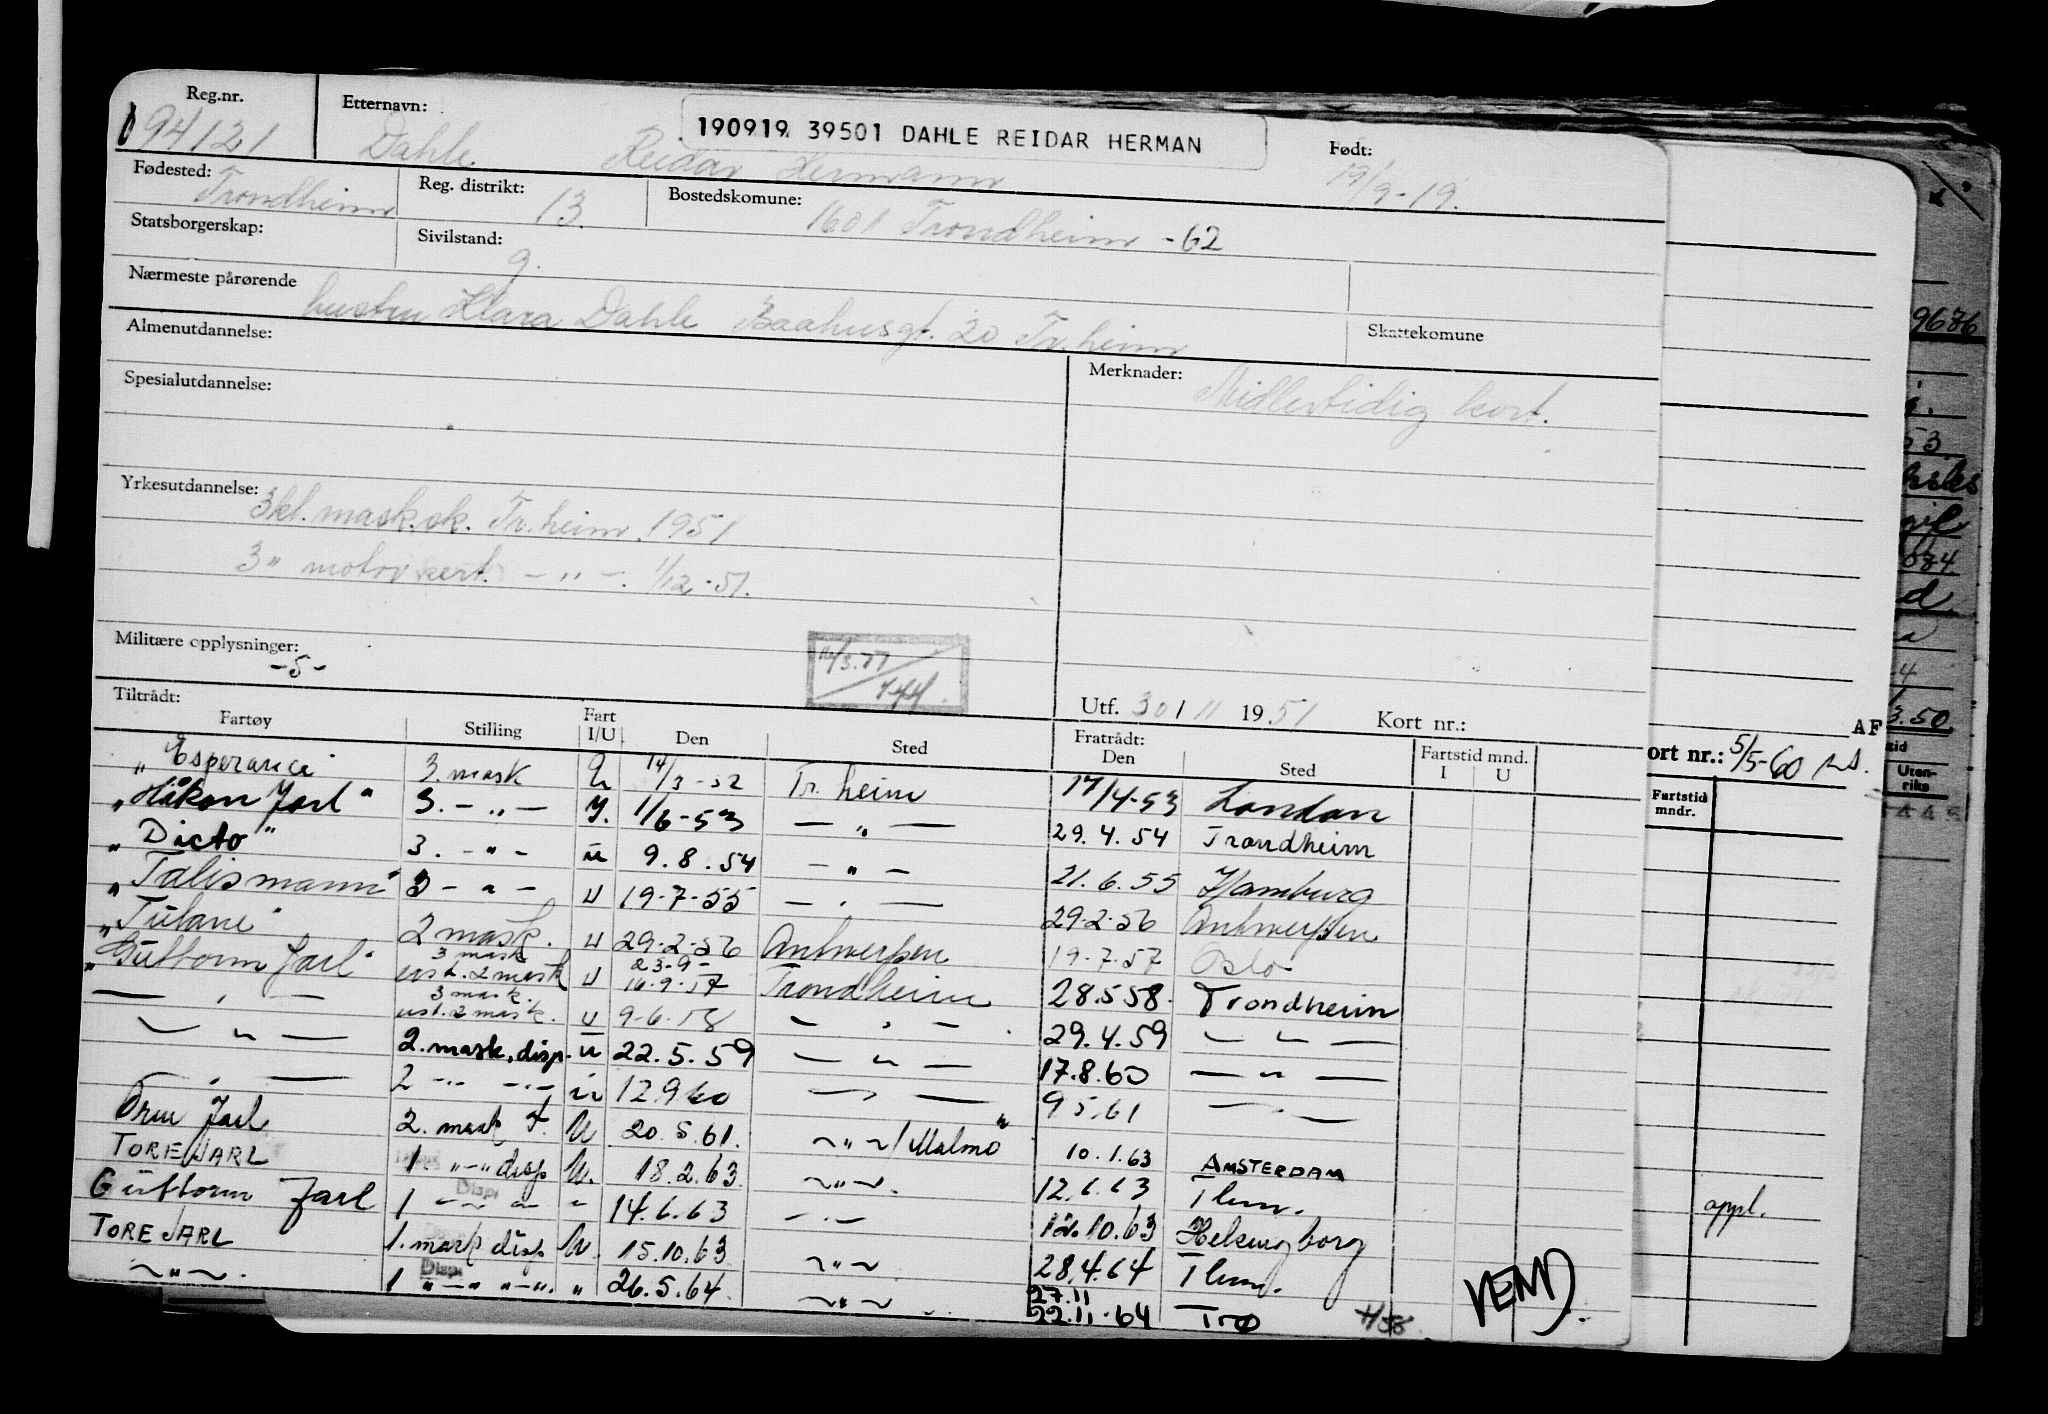 Reg.nr. Etternavn: 190919 39501 DAHLE REIDAR HERMAN Født:
094121 Dahle Reidar Hermann 19/9-19.
Fødested: Trondheim Reg. distrikt: 13. Bostedskomune: 1601 Trondheim -62
Statsborgerskap: Sivilstand: g.
Nærmeste pårørende hustru Klara Dahle Baahusgt. 20 Tr.heim Skattekomune
Almenutdannelse: Merknader: Midlertidig kort.
Spesialutdannelse:
Yrkesutdannelse: 3kl. mask.sk. Tr.heim. 1951
3 " motor sert. - " - . 1/12-51.
Militære opplysninger: -5- 16/3.77 744.
Tiltrådt: Utf. 30/11 1951 Kort nr.:
Fartøy Stilling Fart I/U Den Sted Fratrådt: Den Sted Fartstid mnd. I U
"Esperanci 3. mask U 14/3-52 Tr.heim 17/4-53 London
"Håkon Jarl" 3. - " - I. 1/6-53 - " - 29.4.54 Trondheim
"Dicto" 3. - " - u 9.8.54 - " - 21.6.55 Hamburg
"Talismann" 3 - " - u 19-7-55 - " - 29-2-56 Antwerpen
"Tulane" 2 mask. u 29-2-56 Antwerpen 19.7.57 Oslo
"Guttorm Jarl" 3 mask u 23-9- 16-9-57 Trondheim 28.5.58. Trondheim
- " - 3 mask. 2 mask. u 9-6-58 - " - 29.4.59 - " -
- " - 2. mask. disp. u 22.5.59 - " - 17.8.60 - " -
- " - 2 - " - - " - u 12.9.60 - " - 9.5.61 - " -
Orm Jarl 2. mask U 20.5.61. - " - / Malmø 10.1.63 AMSTERDAM
TORE JARL 1. " - " disp U. 18.2.63. - " -. 12.6.63 Thm.
Guttorm Jarl 1 - " - Disp " 14.6.63 - " - 12.10.63 Helsingborg
TORE JARL 1. mask disp U. 15.10.63 - " - 28.4.64 Thm.
- " -. 1 " - " Disp " - ". " 26.5.64. - " - 27.11 22.11.64 Trø
VEND.
ort nr.: 5/5-60
AF
Fartstid mndr.
appl.
9676
53
3.50
Utenriks
445